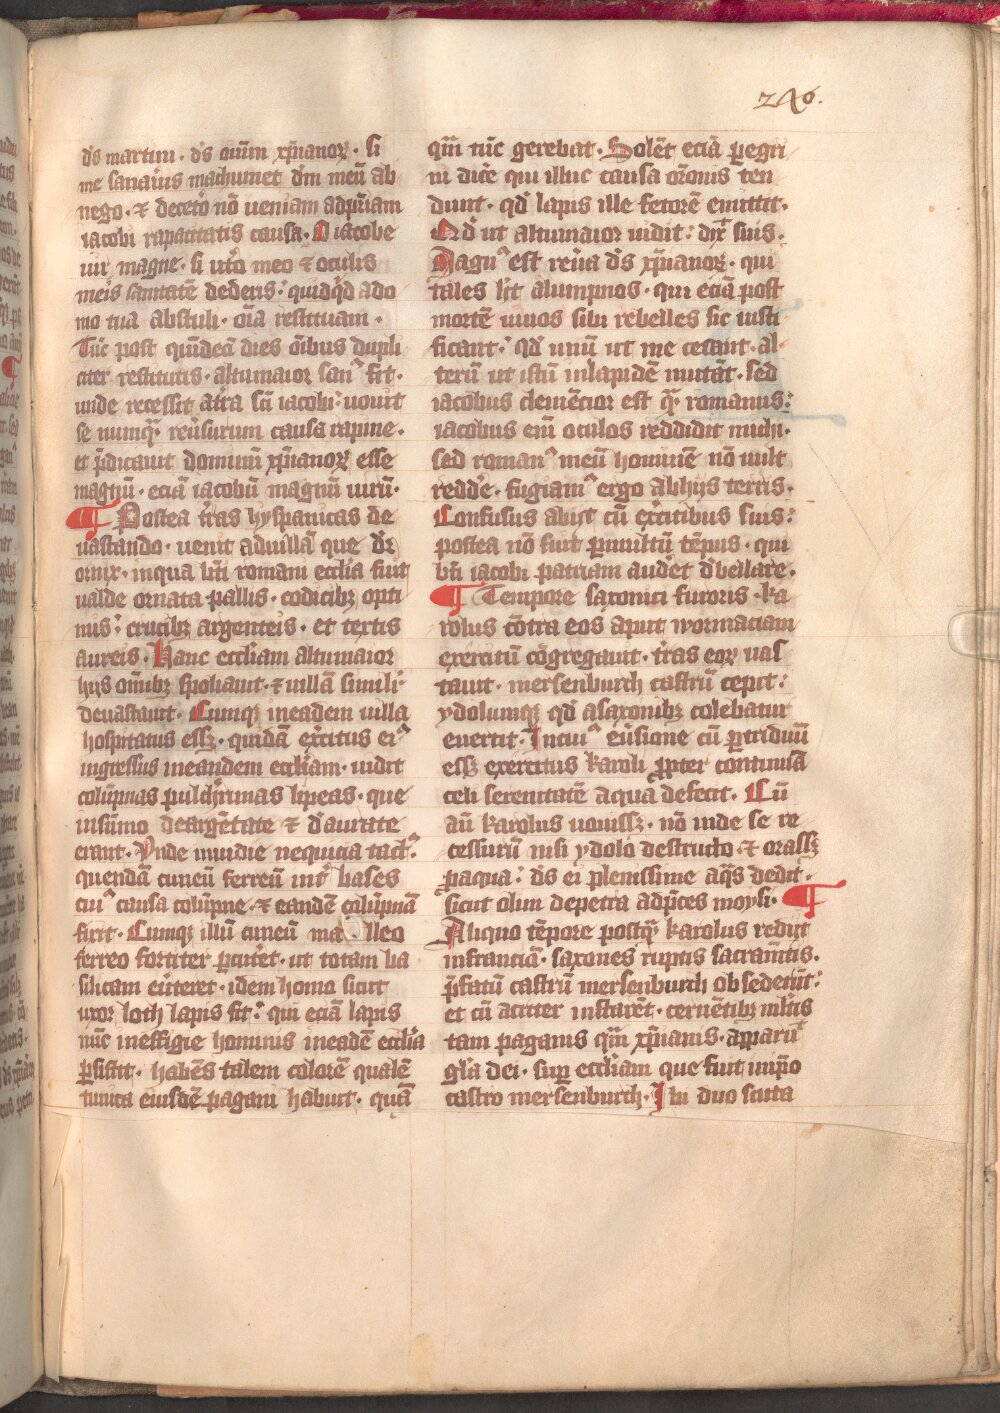 246.
ds martini · ds oīm xp̄ianoꝝ · si
me sanauis machumet dm̄ meū ab
nego · ⁊ decet̉o nō ueniam ad pr̄iam
iacobi rapacitatis causa · O iacobe
uir magne · si ut̉o meo ⁊ oculis
meis sanitatē dederis : quidq̇d ado
mo tua abstuli · oīa restituam ·
Tūc post quīdecī dies oībus dupli
citer restitutis · altumaior sanꝰ fit ·
unde recessit at̉ra sc̄i iacobi : uouit
se nunqꝫ reūsurum causa rapine ·
et p̄dicauit dominū xp̄ianoꝝ esse
magnū · eciā iacobū magnū uirū ·
¶ Postea t̄ras hyspanicas de
uastando · uenit ad uillā que dr̄
ornix · in qua bt̄i romani ecclīa fuit
ualde ornata pallis · codicibꝫ opti
mis : crucibꝫ argenteis · et textis
aureis · Hanc eccl̄iam altumaior
hijs om̄ibꝫ spoliauit · ⁊ uillā simili
deuastauit · Cumqꝫ in eadem uilla
hospitatus essꝫ · quidā ex̄citus eiꝰ
ingressus in eandem eccl̄iam · uidit
colūpnas pulch̄rimas lipeas · que
in sūmo deargētate ⁊ d̄aurate
erant · Vnde inuidie nequicia tactꝰ
quendā cuneū ferreū int̉ bases
cuiꝰ causa colūpne · ⁊ eandē colūpnā
fixit · Cumqꝫ illū cuneū malleo
ferreo fortiter ꝑcut̉et · ut totam ba
silicam eūteret · idem homo sicut
uxor loth lapis fit : qui eciā lapis
nūc in effigie hominis in eadē ecclīa
ꝑsistit · habēs talem colorē qualē
tunica eiusdē pagani habuit · quā
qm̄ tūc gerebat · Solēt eciā ꝑegri
ni dicē qui illuc causa or̄onis ten
dunt · qd̄ lapis ille fetorē emittit ·
Qd̄ ut altumaior uidit : dix̄ suis ·
Magnꝰ est reūa ds̄ xp̄ianoꝝ · qui
tales ht̄ alumpnos · qui eciā post
mortē uiuos sibi rebelles sic iusti
ficant : qd̄ unū ut me cecant · al
terū ut istū in lapidē mutāt · sed
iacobus clemēcior est qꝫ romanus :
iacobus em̄ oculos reddidit michi ·
sed romanꝰ meū hominē nō uult
redd̉e · fugiamꝰ ergo ab hijs terris ·
Confusus abijt cū ex̄citibus suis :
postea nō fuit ꝑmultū tēpus · qui
bt̄i iacobi patriam aud̉et d̉bellare ·
¶ Tempore saxonici furoris · ka
rolus cōtra eos aput wormaciam
exercitū cōgregauit · t̄ras eoꝝ uas
tauit · mersenburch castrū cepit :
ydolumqꝫ qd̄ a saxonibꝫ colebatur
euertit · In cuiꝰ eūsione cū ꝑ triduū
essꝫ exercitus karoli ꝓpter continuā
celi serenitatē aqua defecit · Cū
aū karolus uouissꝫ · nō inde se re
cessurū nisi ydolo destructo ⁊ orassꝫ
ꝓ aqua : ds̄ ei plenissime aq̄s dedit ·
sicut olim de petra ad p̄ces moysi · ¶
Aliquo tēpore postqꝫ karolus redijt
in franciā · saxones ruptis sacram̄tis ·
p̄fatū castrū mersenburch obsederūt :
et cū acriter instarēt · cernētibꝫ ml̄tis
tam paganis qm̄ xp̄ianis · apparuit
gl̄ia dei · suꝑ eccl̄iam que fuit in ip̄o
castro mersenburch · Ibi duo scuta